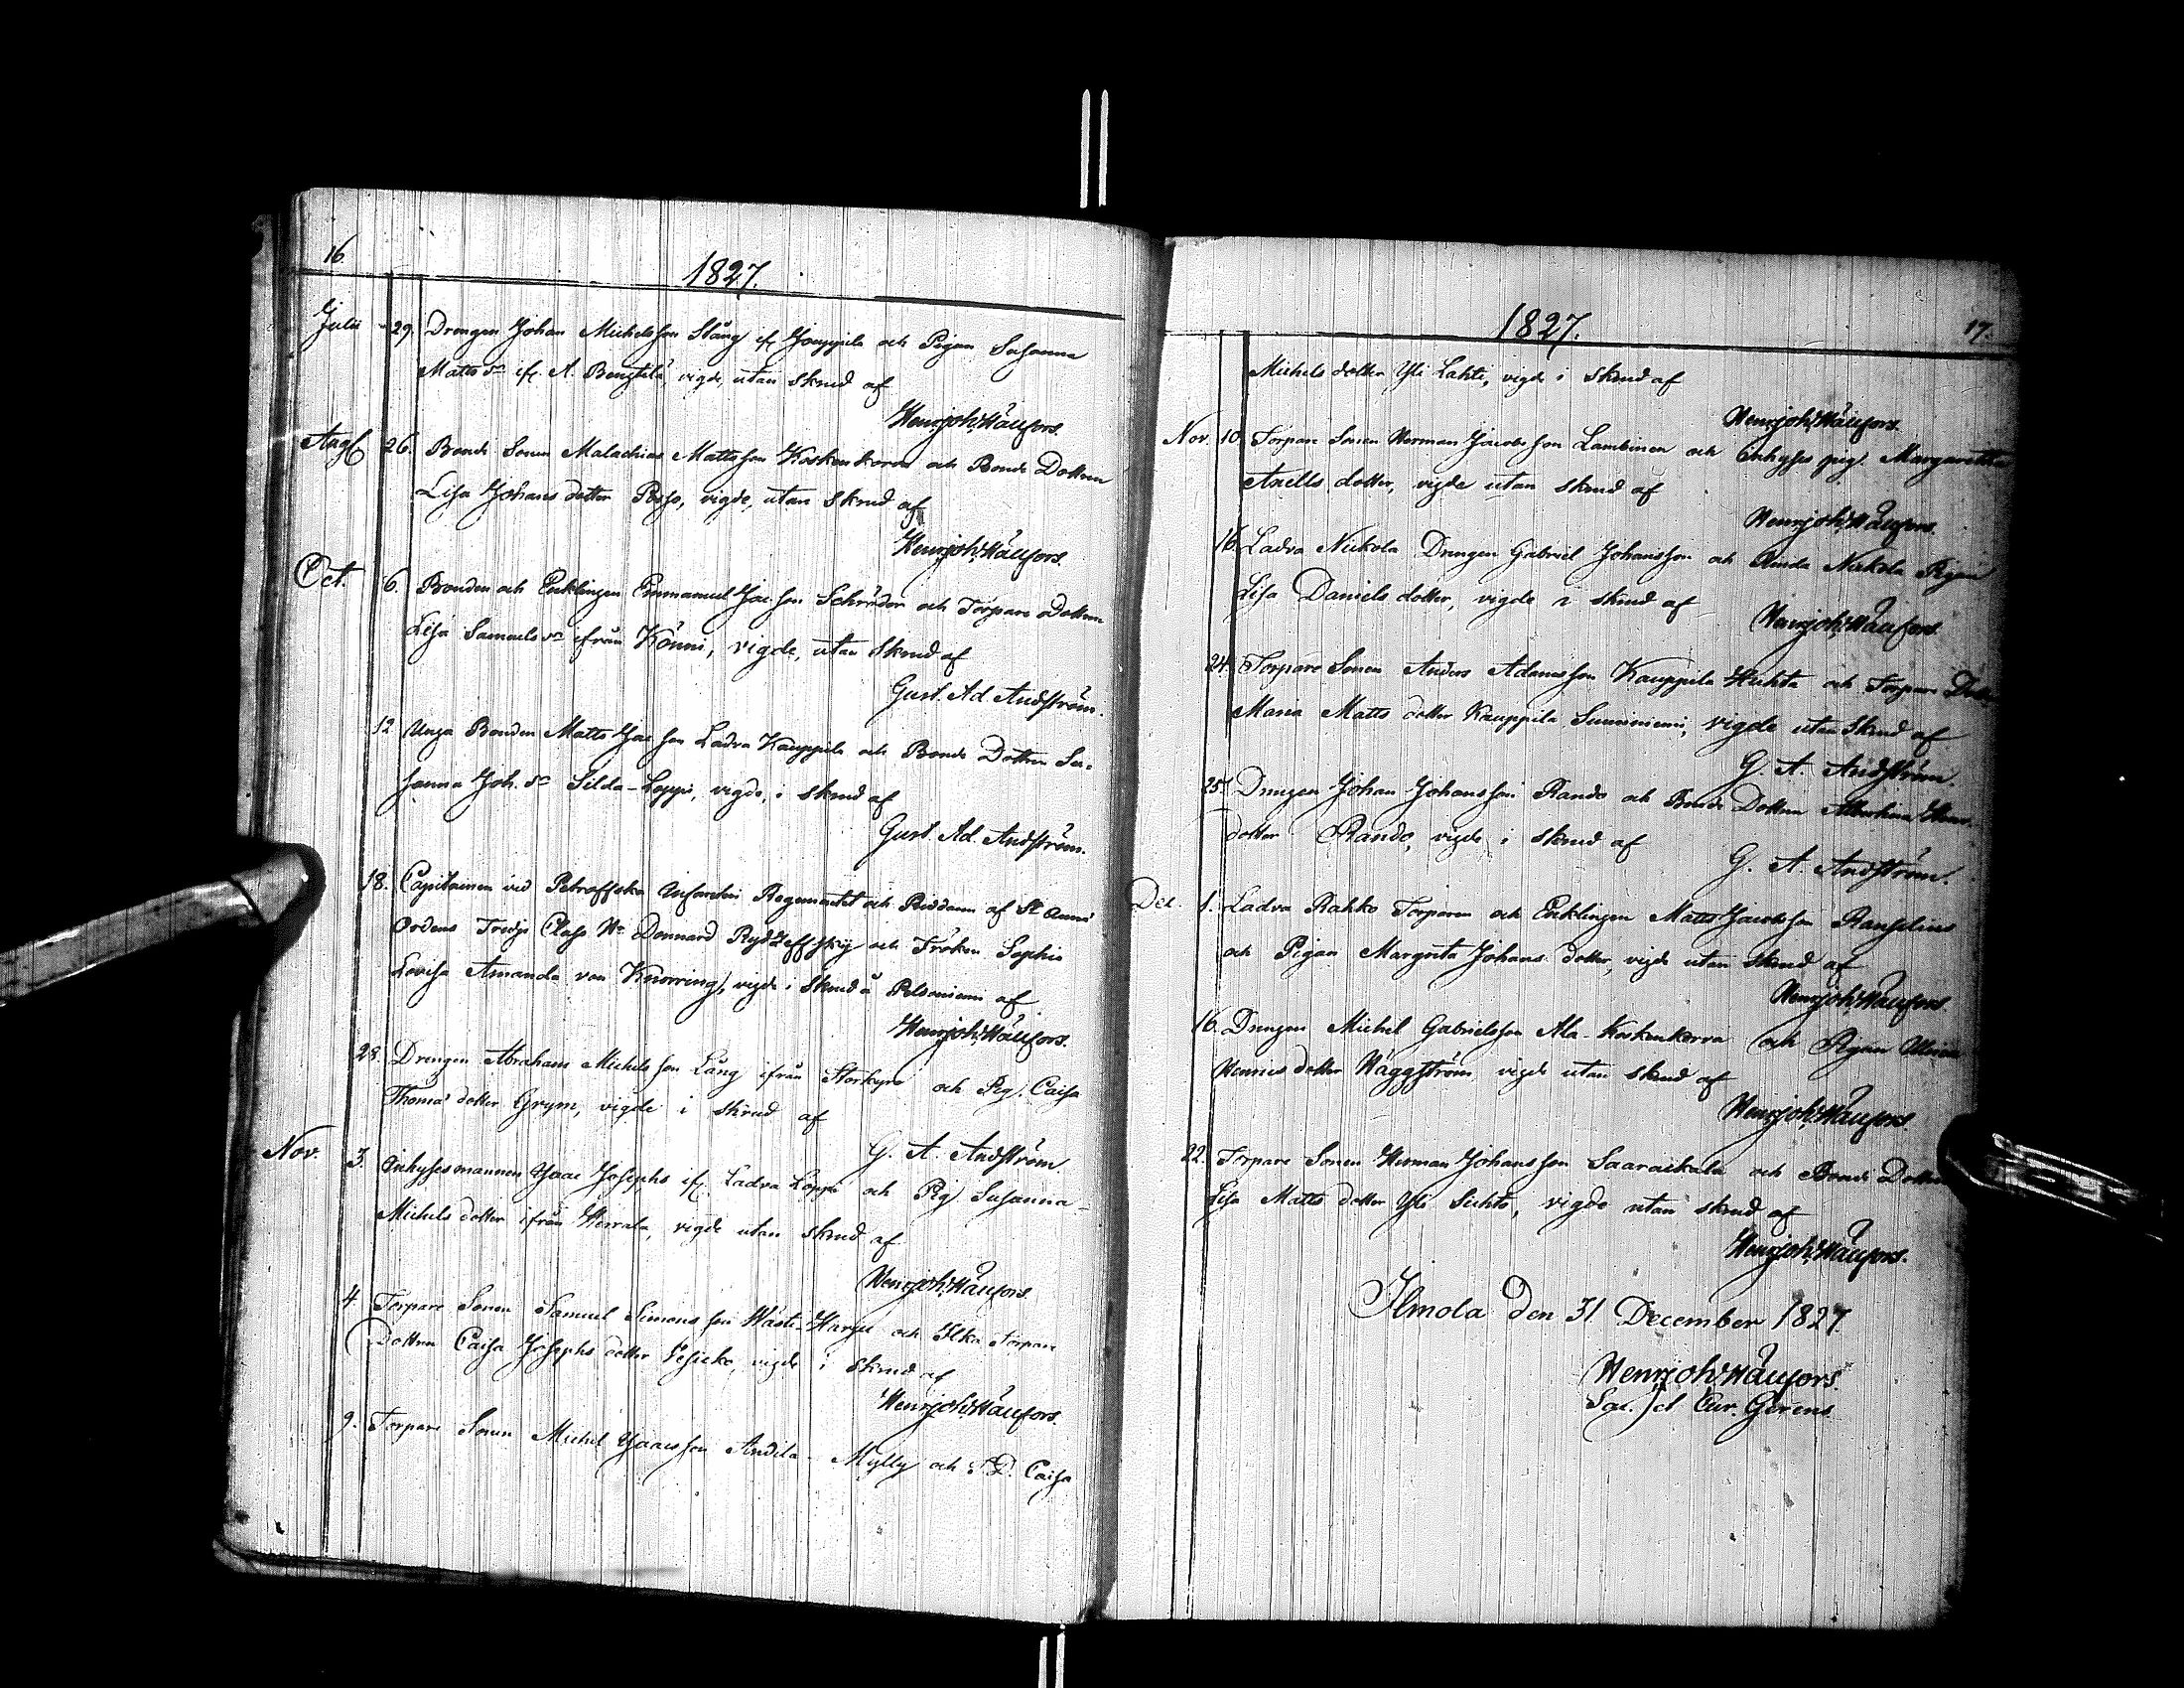 16.
1827.
Julii 29. Drengen Johan Michelsson Stång if. Jouppila och Pigan Susanna
Matts dr if. A. Bengtilä, vigde, utan skrud af
Henr. Joh. Wäufors.
Aug. 26. Bonde Sonen Malachias Mattsson Koskenkorva och Bonde Dottren
Lisa Johans dotter Passo, vigde, utan skrud af
Henr. Joh. Wäufors.
Oct. 6. Bonden och Enklingen Emmanuel Jac. son Schröder och Torpare dottren
Lisa Samuels dr ifrån Könni, vigde, utan skrud af
Gust. Ad. Andström.
12 Unga Bonden Matts Jac son Ladva Kauppila och Bonde Dottren Su-
sanna Joh. dr Silda-Loppi, vigde, i skrud af
Gust. Ad. Andström.
18. Capitainen vid Petroffska Infanteri Regementet och Riddaren af St Annæ
Ordens Tredje Class Wr Donnard och Fröken Sophia
Lovisa Amanda von Knorring, vigde i skrud å Peldoniemi af
Henr. Joh. Wäufors.
28. Drengen Abraham Michelsson Lång ifrån Storkyro och Pig. Caisa
Thomæ dotter Grym, vigde i skrud af
G. A. Andström
Nov. 3. Inhysesmannen Isaac Josephs if. Ladva Loppi och Pig. Susanna
Michels dotter ifrån Herrala, vigde utan skrud af
Henr. Joh. Wäufors.
4 Torpare Sonen Samuel Simonsson Wästi-Harju och Ilka Torpare
Dottren Caisa Josephs dotter, vigde i skrud af
Henr. Joh. Wäufors.
9. Torpare Sonen Michel Isaacsson Andila-Mylly och T. D. Caisa
1827.
17.
Michels dotter Yli Lahti, vigde i skrud af
Henr. Joh. Wäufors.
Nov. 10. Torpare Sonen Herman Jacobsson Lambinen och Inhyses pig. Margaretha
Anells dotter, vigde utan skrud af
Henr. Joh. Wäufors.
16. Ladva Nickola Drengen Gabriel Johansson och Rinda Nickola Pigan
Lisa Daniels dotter, vigde i skrud af
Henr. Joh. Wäufors.
24. Torpare Sonen Anders Adamsson Kauppila Huhta och Torpare
Maria Matts dotter Kauppila Suminiemi, vigde utan skrud af
G. A. Andström
25. Drengen Johan Johansson Rando och Bonde Dottren Albertina
dotter Rando, vigde i skrud af
G. A. Andström.
Dec. 1. Ladva Rahko Torparen och Enklingen Matts Jacobsson Ranselius
och Pigan Margreta Johans dotter, vigde utan skrud af
Henr. Joh. Wäufors.
16. Drengen Michel Gabrielsson Ala-Koskenkorva och Pigan Ulrica
Henrics dotter Häggström, vigde utan skrud af
Henr. Joh. Wäufors.
22. Torpare Sonen Herman Johansson Saaraikala och Bonde Dottren
Lisa Matts dotter Yli Sichto, vigde utan skrud af
Henr. Joh. Wäufors.
Ilmola den 31 December 1827.
Henr. Joh. Wäufors.
Sac. et Cur. Gerens.